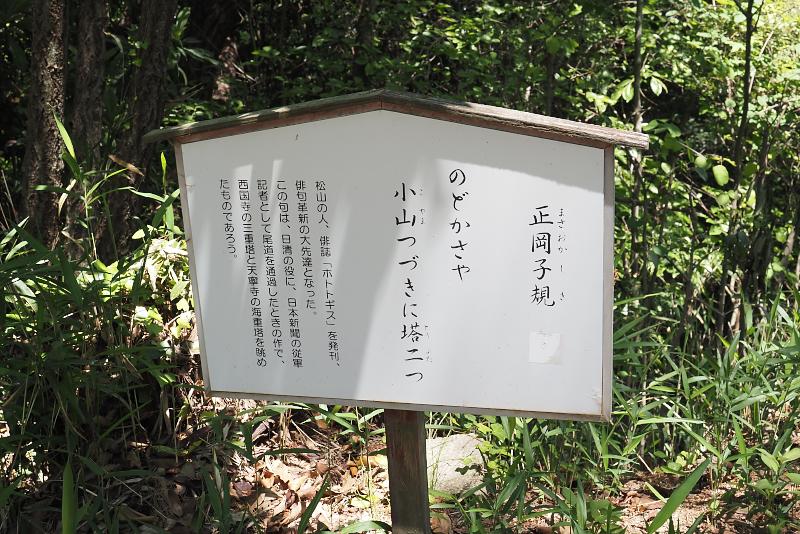 正岡子規
まさおか しき
のどかさや
小山つづきに塔二つ
こやま
松山の人、俳誌「ホトトギス」を発刊、
俳句革新の大先達となった。
この句は、日清の役に、日本新聞の従軍
記者として尾道を通過したときの作で、
西国寺の三重塔と天寧寺の海重塔を眺め
たものであろう。